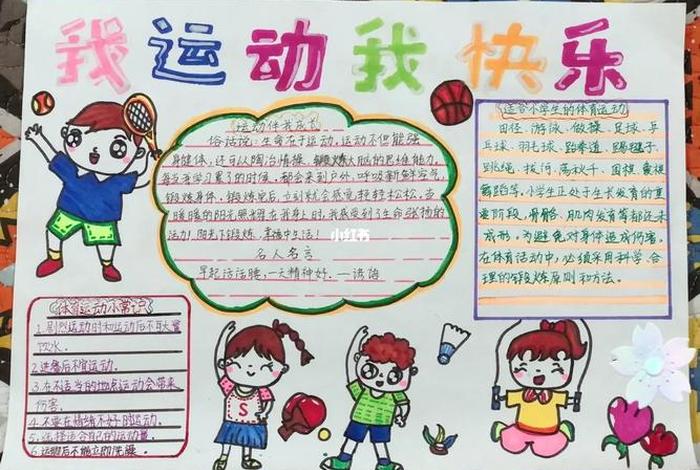 我运动我快乐
运动伴我成长
俗话说：生命在于运动，运动不但能强
身健体，还可以陶冶情操，锻炼人脑的思维能力。
每当我学习累了的时候，都会来到户外，呼吸新鲜空气，
锻炼身体，锻炼完后，立刻就会感觉轻轻松松，当
暖暖的阳光照耀在我身上时，我感受到了生命张扬的
活力！阳光下锻炼，幸福中生活！
名人名言
早起活活腰，一天精神好。——谚语
小红书
适合小学生的体育运动
田径、游泳、做操、足球、乒
乓球、羽毛球、跆拳道、踢毽子、
跳绳、拔河、荡秋千、围棋、象棋
舞蹈等，小学生正处于生长发育的重
要阶段，骨骼、肌肉发育等都还未
成形，为避免对身体造成伤害。
在体育活动中，必须采用科学、合
理的锻炼原则和方法。
体育运动小常识
1.剧烈运动时和运动后不可大量
饮水。
2.进餐后不宜运动。
3.在不适当的地表运动会带来
伤害。
4.不要在情绪不好时运动。
5.选择适合自己的运动量。
6.运动后不能立即洗澡。
S